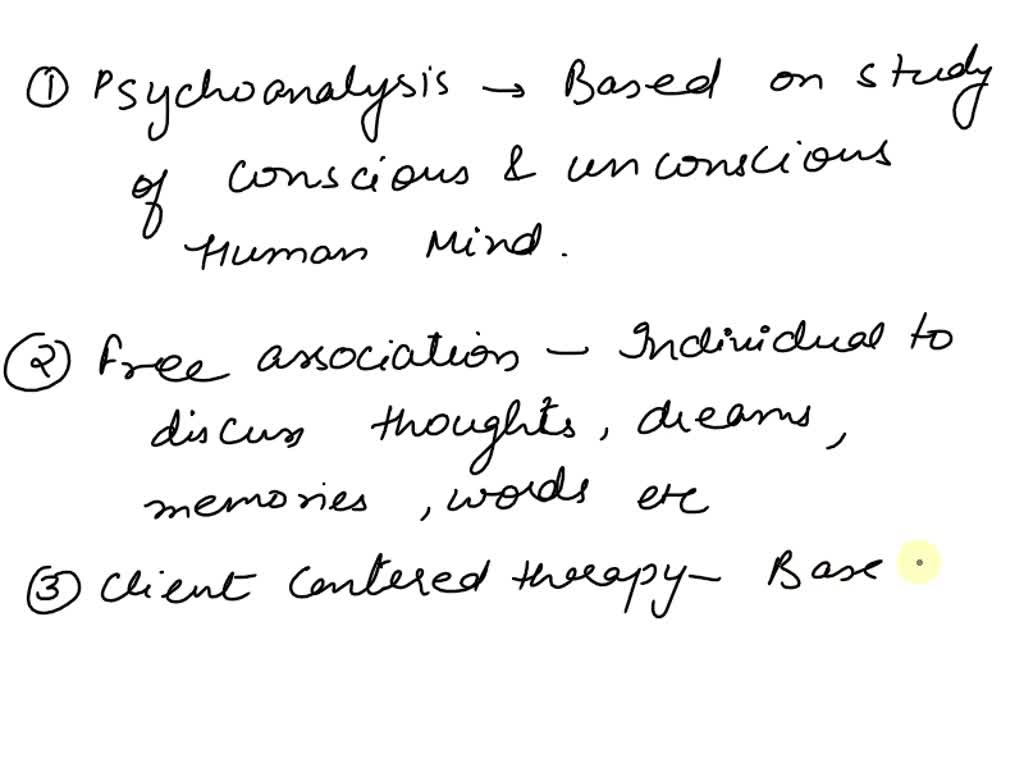 ① Psychoanalysis → Based on study
of conscious & unconscious
Human Mind.
② Free association – Individual to
discuss thoughts, dreams,
memories, words etc
③ Client Centered therapy – Base